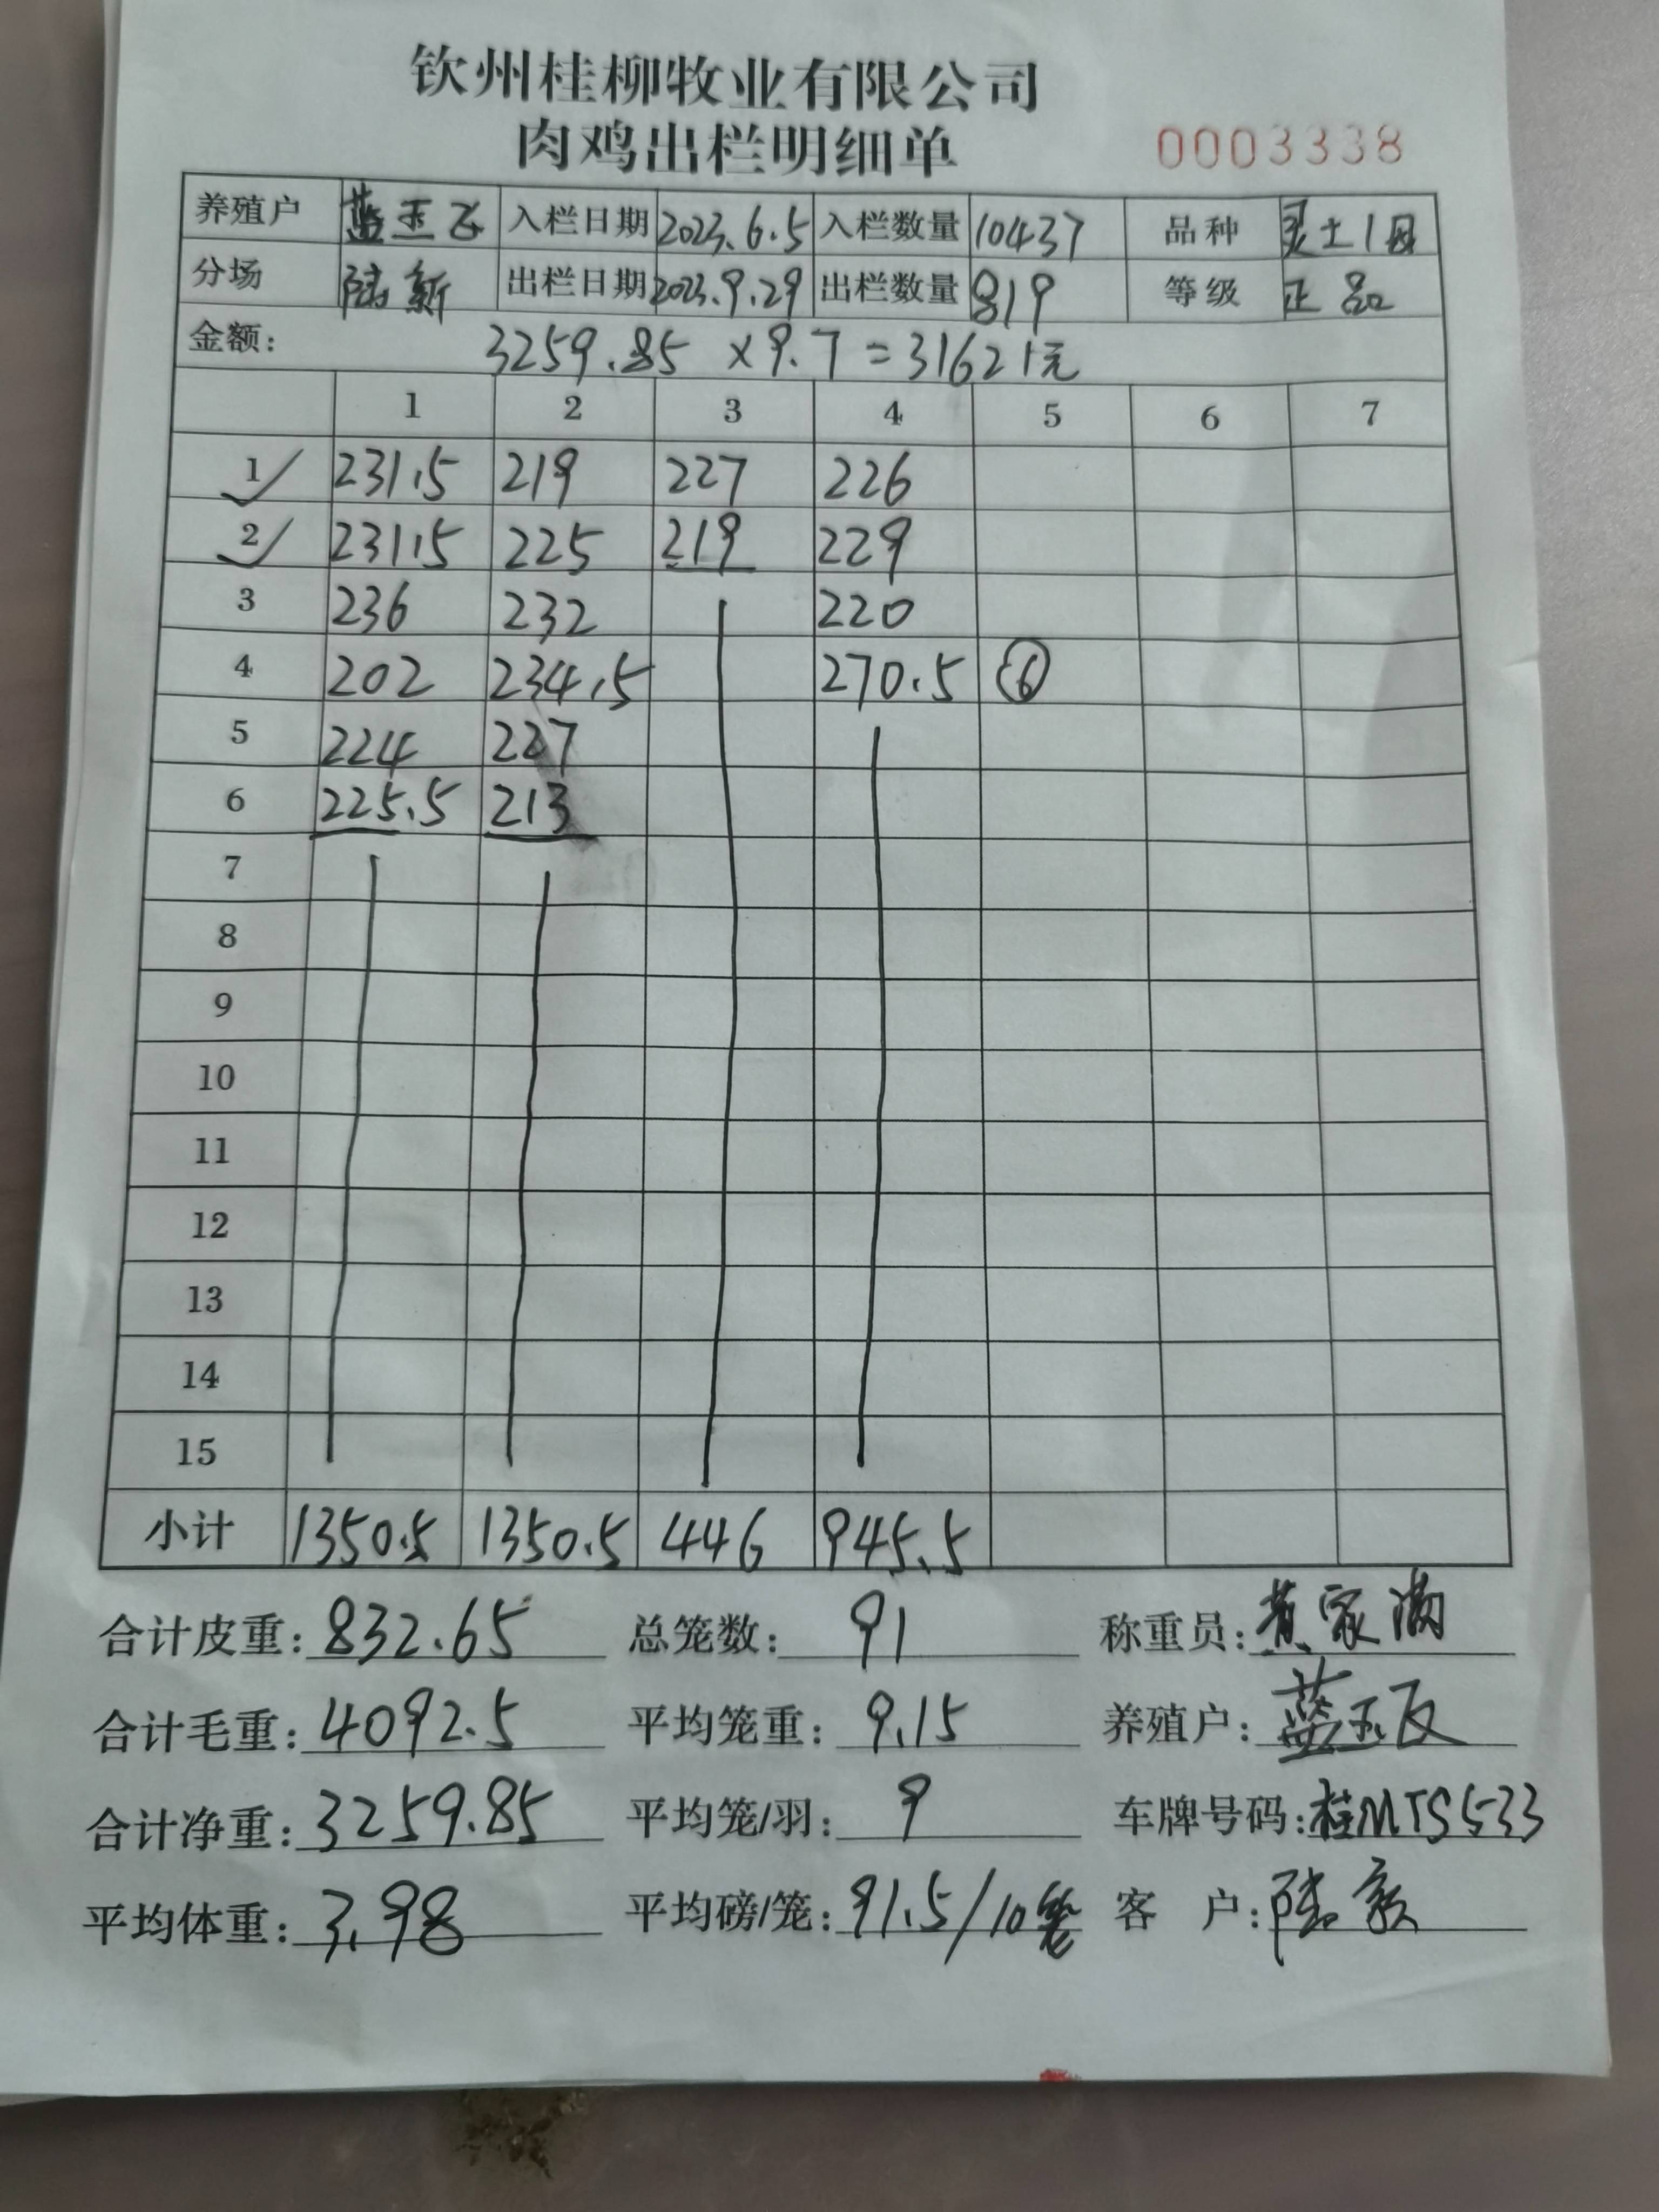 钦州桂柳牧业有限公司
肉鸡出栏明细单 0003338
养殖户 蓝玉 入栏日期 2023.6.5 入栏数量 10437 品种 灵土1母
分场 陆新 出栏日期 2023.9.29 出栏数量 819 等级 正品
金额: 3259.85 ×9.7=31621元
1 2 3 4 5 6 7
1 ✓ 231.5 219 227 226
2 ✓ 231.5 225 219 229
3 236 232 220
4 202 234.5 270.5 ⑥
5 224 227
6 225.5 213
7
8
9
10
11
12
13
14
15
小计 1350.5 1350.5 446 945.5
合计皮重: 832.65 总笼数: 91 称重员: 黄家满
合计毛重: 4092.5 平均笼重: 9.15 养殖户: 蓝玉
合计净重: 3259.85 平均笼/羽: 9 车牌号码: 桂MTS533
平均体重: 3.98 平均磅/笼: 91.5/10笼 客 户: 陆